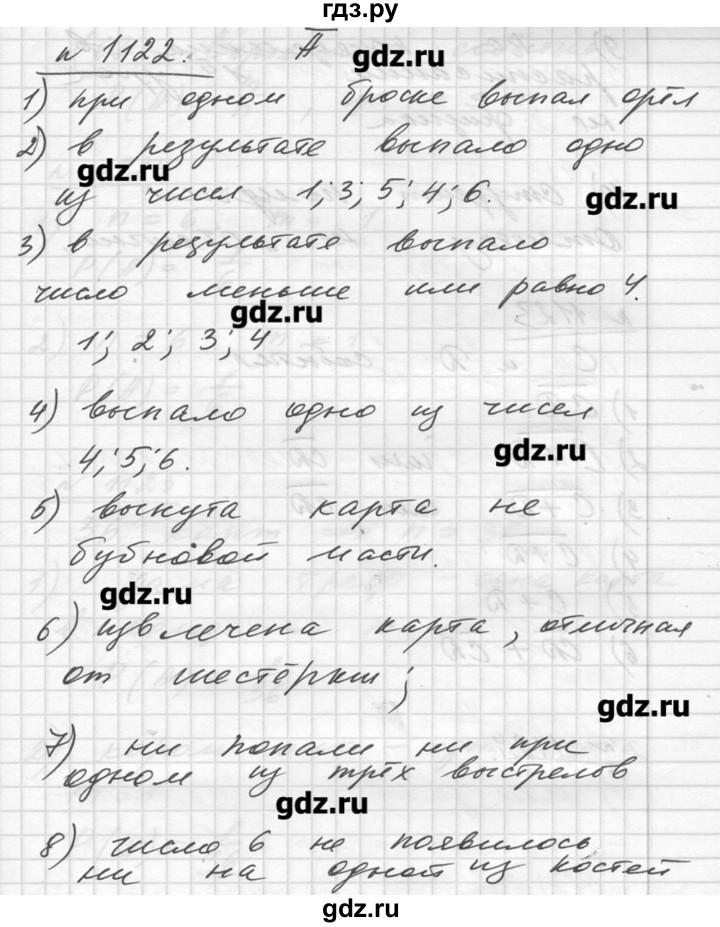 гдз.ру
№ 1122. Ā
gdz.ru
1) при одном броске выпал орёл
2) в результате выпало одно
gdz.ru
из чисел 1; 3; 5; 4; 6.
gdz.ru
3) в результате выпало
число меньше или равно 4.
gdz.ru
1; 2; 3; 4
4) выпало одно из чисел
gdz.ru
4; 5; 6.
5) вынута карта не
бубновой масти.
gdz.ru
6) извлечена карта, отличная
от шестёрки;
gdz.ru
7) ни попали ни при
одном из трёх выстрелов
gdz.ru
8) число 6 не появилось
ни на одной из костей
gdz.ru